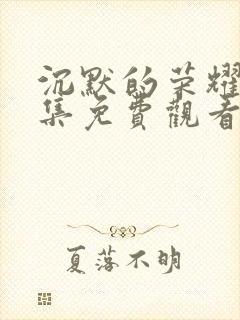 沉默的荣耀
集免費觀看
夏落不明